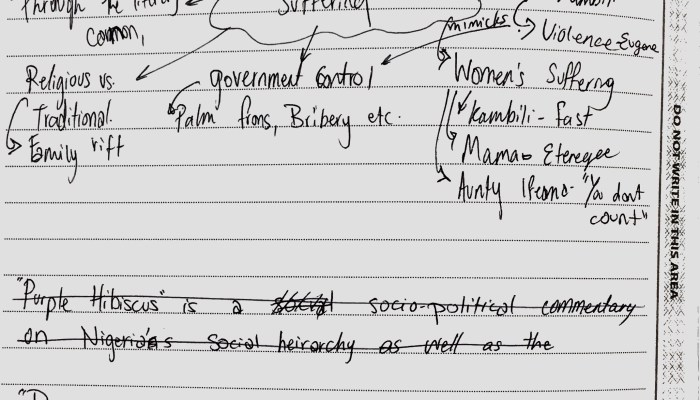 through the literary
common,
Suffering
mimicks
Violence - Eugene
Religious vs.
Traditional.
Family rift
government control
Palm frons, Bribery etc.
Women's Suffering
Kambili - fast
Mama -
Aunty Ifeoma - "You don't
count"
"Purple Hibiscus" is a social socio-political commentary
on Nigeria's social heirarchy as well as the
DO NOT WRITE IN THIS AREA